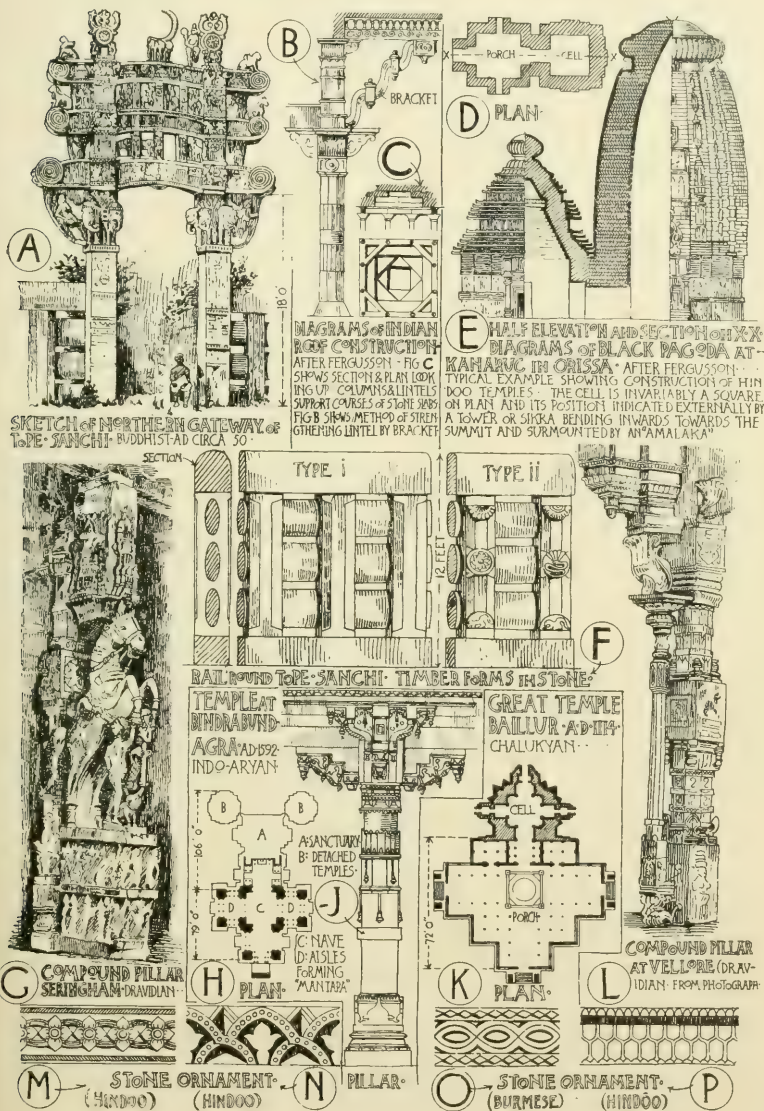 A
B
BRACKET
C
PORCH
CELL
X
X
D PLAN·
18'0"
SKETCH of NORTHERN GATEWAY of
TOPE·SANCHI· BUDDHIST·AD CIRCA 50·
DIAGRAMS of INDIAN
ROOF CONSTRUCTION·
AFTER FERGUSSON · FIG C
SHOWS SECTION & PLAN LOOK
ING UP COLUMNS & LINTELS
SUPPORT COURSES OF STONE SLABS
FIG B SHOWS METHOD OF STREN
GTHENING LINTEL BY BRACKET
E HALF ELEVATION AND SECTION ON X·X·
DIAGRAMS of BLACK PAGODA AT
KANARUC IN ORISSA· AFTER FERGUSSON···
TYPICAL EXAMPLE SHOWING CONSTRUCTION OF HIN
DOO TEMPLES·· THE CELL IS INVARIABLY A SQUARE
ON PLAN AND ITS POSITION INDICATED EXTERNALLY BY
A TOWER OR SIKRA BENDING INWARDS TOWARDS THE
SUMMIT AND SURMOUNTED BY AN "AMALAKA"
SECTION
TYPE i
TYPE ii
12 FEET
F
RAIL ROUND TOPE·SANCHI· TIMBER FORMS IN STONE·
G COMPOUND PILLAR
SERINGHAM·DRAVIDIAN··
TEMPLE AT
BINDRABUND·
AGRA·AD·1592·
INDO-ARYAN·
B
B
A
106'0"
79'0"
D
C
D
A: SANCTUARY
B: DETACHED
TEMPLES·
C: NAVE
D: AISLES
FORMING
"MANTAPA"
H PLAN·
J
PILLAR·
GREAT TEMPLE
BAILLUR·A·D·1114·
CHALUKYAN··
CELL
PORCH
72'0"
K PLAN·
L COMPOUND PILLAR
AT VELLORE (DRAV-
IDIAN· FROM PHOTOGRAPH·
M STONE ORNAMENT· N
(HINDOO) (HINDOO)
O STONE ORNAMENT· P
(BURMESE) (HINDOO)